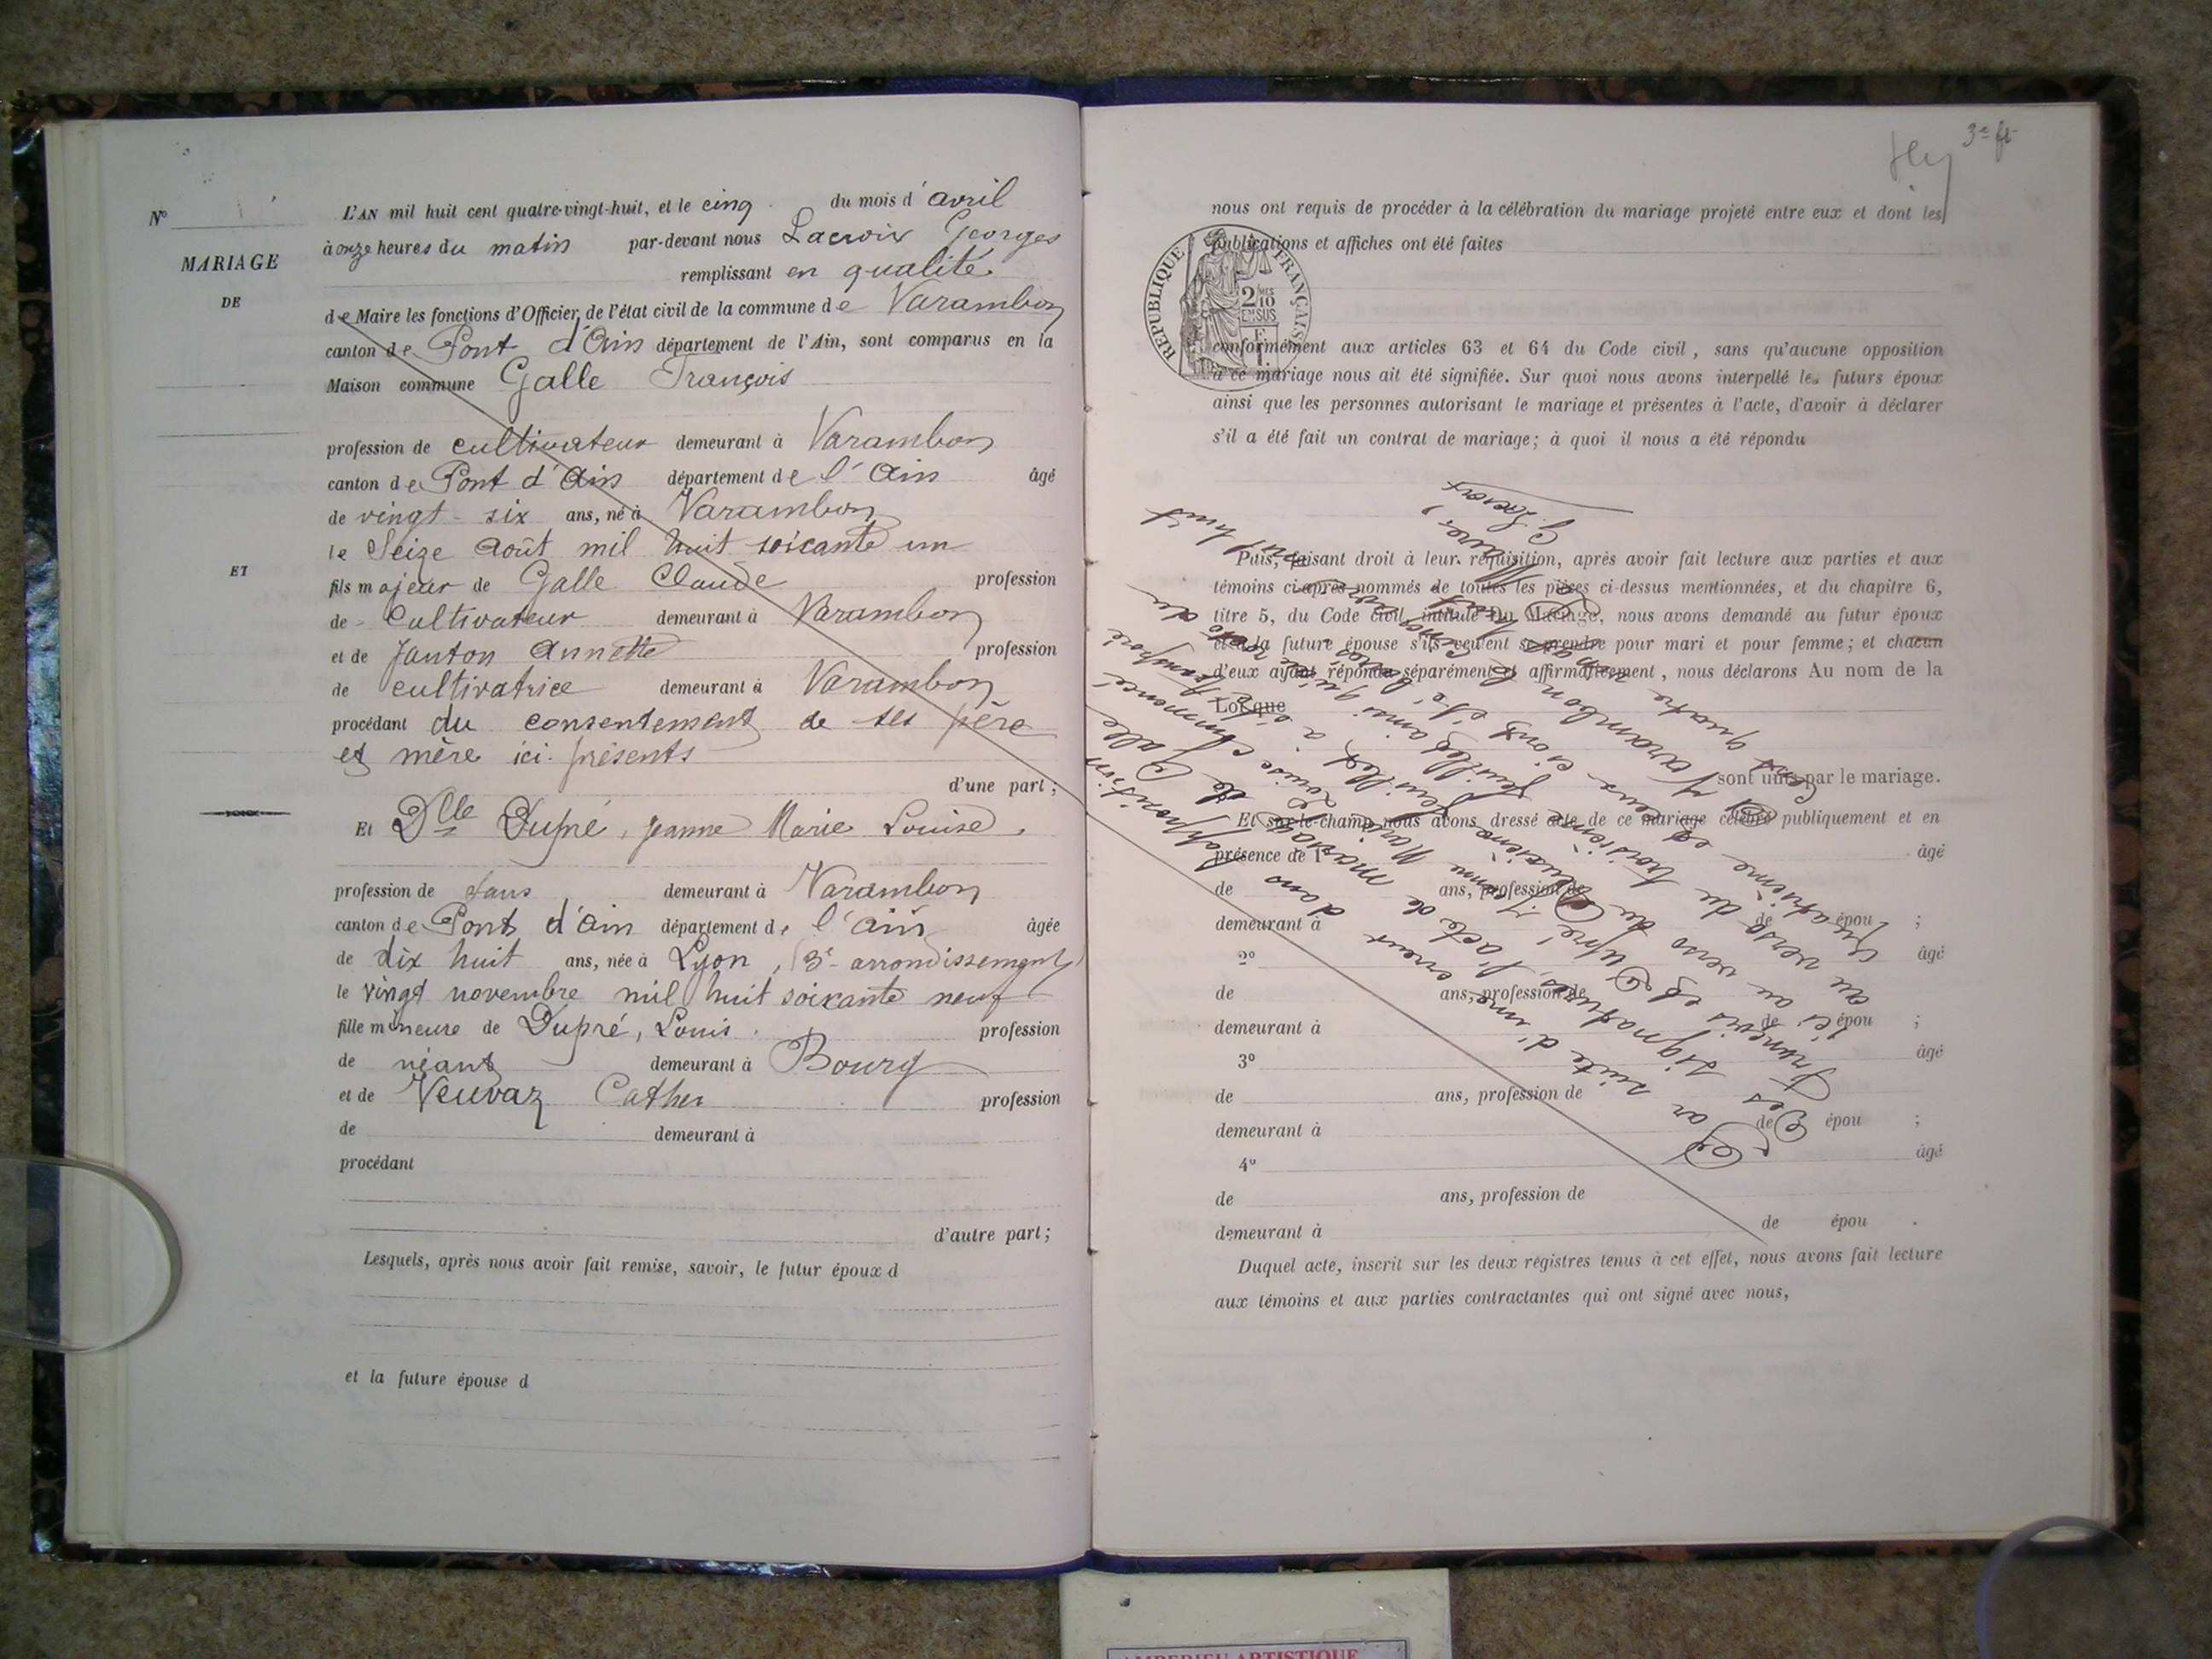 N°
MARIAGE
DE
ET
L'AN mil huit cent quatre-vingt-huit, et le cinq du mois d'avril
à onze heures du matin par-devant nous Lacroix Georges
remplissant en qualité
de Maire les fonctions d'Officier de l'état civil de la commune de Varambon
canton de Pont d'Ain département de l'Ain, sont comparus en la
Maison commune Galle François
profession de cultivateur demeurant à Varambon
canton de Pont d'Ain département de l'Ain âgé
de vingt-six ans, né à Varambon
le Seize Août mil huit soixante un
fils majeur de Galle Claude profession
de Cultivateur demeurant à Varambon
et de Janton Annette profession
de cultivatrice demeurant à Varambon
procédant du consentement de ses père
et mère ici présents
d'une part;
Et Dlle Dupré, Jeanne Marie Louise,
profession de sans demeurant à Varambon
canton de Pont d'Ain département de l'Ain âgée
de dix huit ans, née à Lyon, (3e arrondissement)
le vingt novembre mil huit soixante neuf
fille mineure de Dupré, Louis profession
de néant demeurant à Bourg
et de Veuvaz Cather profession
de demeurant à
procédant
d'autre part;
Lesquels, après nous avoir fait remise, savoir, le futur époux d
et la future épouse d
3e ft
nous ont requis de procéder à la célébration du mariage projeté entre eux et dont les
publications et affiches ont été faites
REPUBLIQUE FRANÇAISE
2/10 EN SUS
conformément aux articles 63 et 64 du Code civil, sans qu'aucune opposition
à ce mariage nous ait été signifiée. Sur quoi nous avons interpellé les futurs époux
ainsi que les personnes autorisant le mariage et présentes à l'acte, d'avoir à déclarer
s'il a été fait un contrat de mariage; à quoi il nous a été répondu
Puis, faisant droit à leur réquisition, après avoir fait lecture aux parties et aux
témoins ci-après nommés de toutes les pièces ci-dessus mentionnées, et du chapitre 6,
titre 5, du Code civil, intitulé Du Mariage, nous avons demandé au futur époux
et à la future épouse s'ils veulent se prendre pour mari et pour femme; et chacun
d'eux ayant répondu séparément et affirmativement, nous déclarons Au nom de la
Loi que
sont unis par le mariage.
Et sur-le-champ nous avons dressé acte de ce mariage célébré publiquement et en
présence de 1° âgé
de ans, profession de
demeurant à de épou ;
2° âgé
de ans, profession de
demeurant à de épou ;
3° âgé
de ans, profession de
demeurant à de épou ;
4° âgé
de ans, profession de
demeurant à de épou .
Duquel acte, inscrit sur les deux régistres tenus à cet effet, nous avons fait lecture
aux témoins et aux parties contractantes qui ont signé avec nous,
Par suite d'une erreur dans l'apposition
des signatures, l'acte de mariage de Galle
François et Dupré Jeanne Marie Louise commencé
ici au verso du deuxième feuillet, a été transporté
au verso du troisième feuillet ainsi qu'au recto du
quatrième
Varambon le cinq avril mil huit cent
quatre vingt huit
Le Maire,
G. Lacroix
AMBERIEU ARTISTIQUE